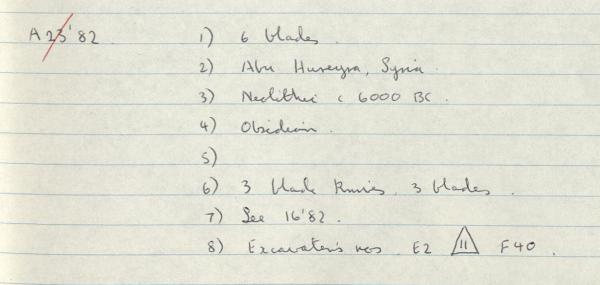 A 23'82 1) 6 blades.
2) Abu Hureyra, Syria.
3) Neolithic c 6000 BC.
4) Obsidian.
5)
6) 3 blade knives, 3 blades.
7) See 16'82.
8) Excavater's nos E2 11 F40.